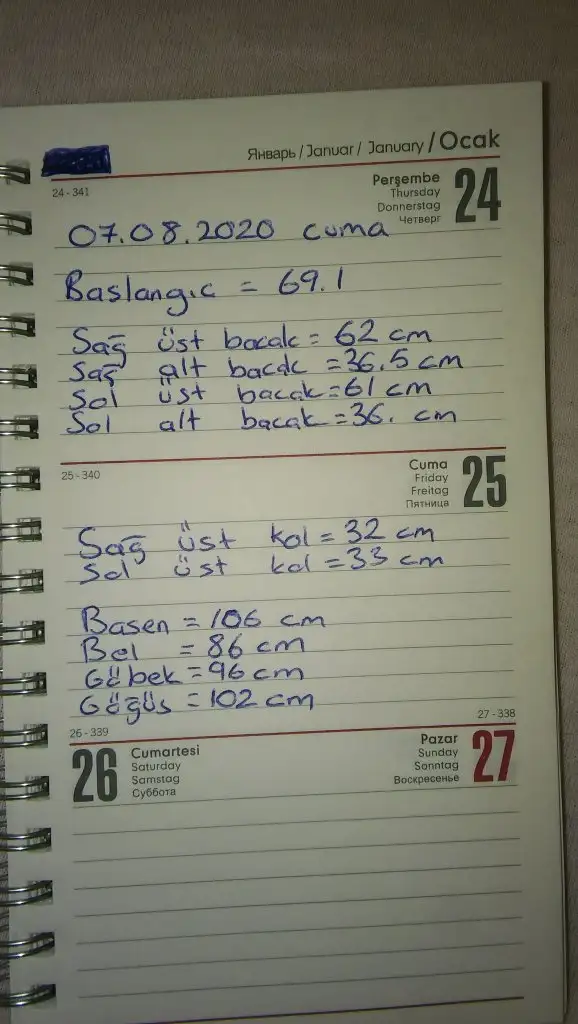 Январь / Januar / January / Ocak
24 - 341
Perşembe
Thursday
Donnerstag
Четверг
24
07.08.2020 cuma
Baslangıc = 69.1
Sağ üst bacak = 62 cm
Sağ alt bacak = 36.5 cm
Sol üst bacak = 61 cm
Sol alt bacak = 36. cm
25 - 340
Cuma
Friday
Freitag
Пятница
25
Sağ üst kol = 32 cm
Sol üst kol = 33 cm
Basen = 106 cm
Bel = 86 cm
Göbek = 96 cm
Göğüs = 102 cm
26 - 339
26
Cumartesi
Saturday
Samstag
Суббота
27 - 338
Pazar
Sunday
Sonntag
Воскресенье
27